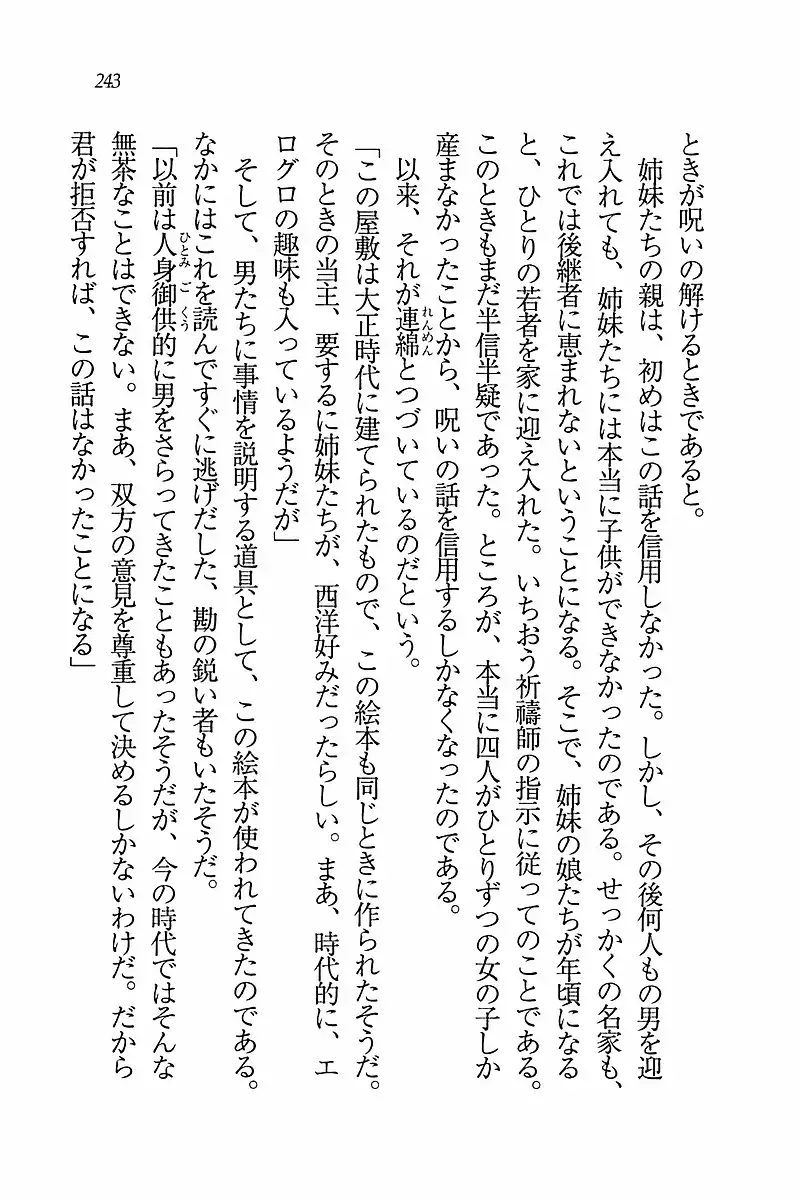 243
ときが呪いの解けるときであると。
　姉妹たちの親は、初めはこの話を信用しなかった。しかし、その後何人もの男を迎
え入れても、姉妹たちには本当に子供ができなかったのである。せっかくの名家も、
これでは後継者に恵まれないということになる。そこで、姉妹の娘たちが年頃になる
と、ひとりの若者を家に迎え入れた。いちおう祈禱師の指示に従ってのことである。
このときもまだ半信半疑であった。ところが、本当に四人がひとりずつの女の子しか
産まなかったことから、呪いの話を信用するしかなくなったのである。
　以来、それが連綿とつづいているのだという。
れんめん
「この屋敷は大正時代に建てられたもので、この絵本も同じときに作られたそうだ。
そのときの当主、要するに姉妹たちが、西洋好みだったらしい。まあ、時代的に、エ
ログロの趣味も入っているようだが」
　そして、男たちに事情を説明する道具として、この絵本が使われてきたのである。
なかにはこれを読んですぐに逃げだした、勘の鋭い者もいたそうだ。
「以前は人身御供的に男をさらってきたこともあったそうだが、今の時代ではそんな
ひとみごくう
無茶なことはできない。まあ、双方の意見を尊重して決めるしかないわけだ。だから
君が拒否すれば、この話はなかったことになる」